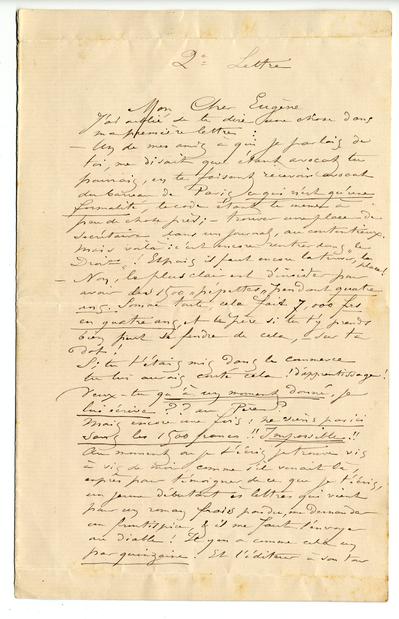 2e Lettre
Mon Cher Eugène
J'ai oublié de te dire une chose dans
ma première lettre :
— Un de mes amis à qui je parlais de
toi, me disait que étant avocat tu
pourrais, en te faisant recevoir avocat
du barreau de Paris ce qui n'est qu'une
formalité, le code étant le même à
peu de chose près ; — trouver une place de
secrétaire dans un journal, au contentieux.
Mais voilà ! c'est encore rentrer dans le
Droit ! Et puis il faut encore la trouver, la place !
— Non, le plus clair est d'insister pour
avoir des 1500 pendant quatre
ans. Somme toute cela fait 7,000 frs
en quatre ans, et le Père si tu t'y prends
bien peut se fendre de cela, sur ta
dot !
Si tu t'étais mis dans le commerce
tu lui aurais coûté cela ! d'apprentissage !
Veux-tu qu'à un moment donné, je
lui écrive ?? au Père ?
Mais encore une fois, ne viens pas ici
sans les 1500 francs !! Impossible !!
Au moment où je t'écris je trouve vis
à vis de moi comme s'il venait là,
exprès pour témoigner de ce que je t'écris,
un jeune débutant ès lettres qui vient
pour un roman frais pondu, me demander
un frontispice, & il me faut l'envoyer
au diable ! Il y en a comme cela un
par quinzaine. Et l'éditeur à son tour